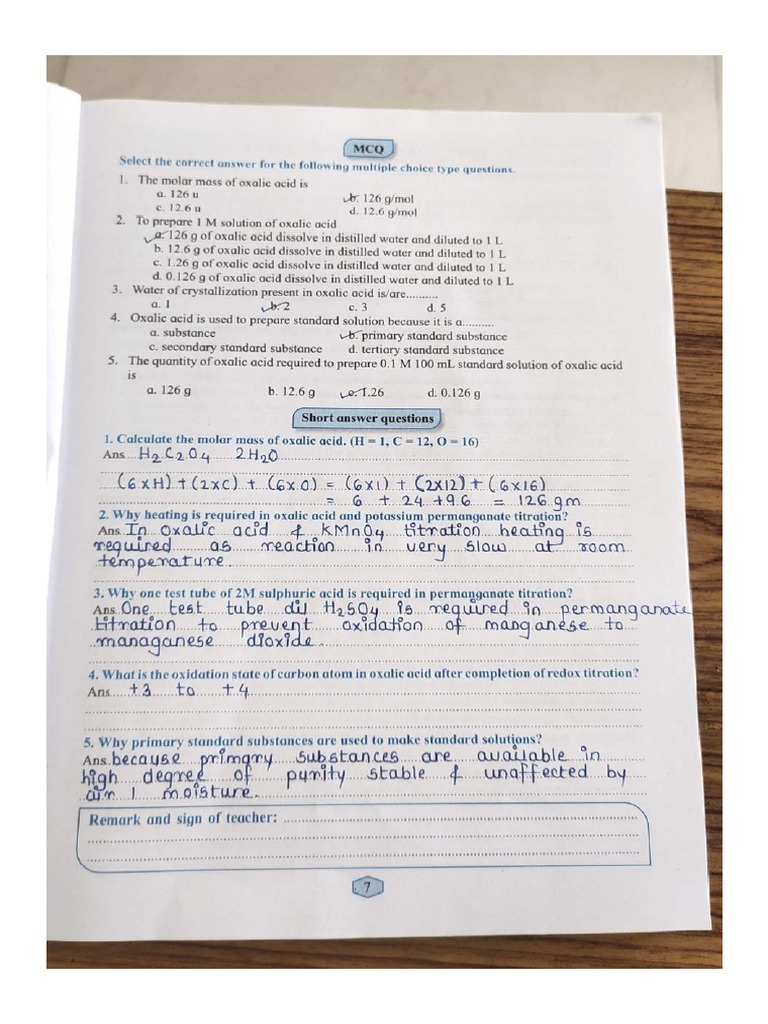 MCQ
Select the correct answer for the following multiple choice type questions.
1. The molar mass of oxalic acid is
a. 126 u b. 126 g/mol
c. 12.6 u d. 12.6 g/mol
2. To prepare 1 M solution of oxalic acid
a. 126 g of oxalic acid dissolve in distilled water and diluted to 1 L
b. 12.6 g of oxalic acid dissolve in distilled water and diluted to 1 L
c. 1.26 g of oxalic acid dissolve in distilled water and diluted to 1 L
d. 0.126 g of oxalic acid dissolve in distilled water and diluted to 1 L
3. Water of crystallization present in oxalic acid is/are..........
a. 1 b. 2 c. 3 d. 5
4. Oxalic acid is used to prepare standard solution because it is a..........
a. substance b. primary standard substance
c. secondary standard substance d. tertiary standard substance
5. The quantity of oxalic acid required to prepare 0.1 M 100 mL standard solution of oxalic acid
is
a. 126 g b. 12.6 g c. 1.26 d. 0.126 g
Short answer questions
1. Calculate the molar mass of oxalic acid. (H = 1, C = 12, O = 16)
Ans H2C2O4 2H2O
(6×H) + (2×C) + (6×O) = (6×1) + (2×12) + (6×16)
= 6 + 24 + 96 = 126 gm
2. Why heating is required in oxalic acid and potassium permanganate titration?
Ans In oxalic acid & KMnO4 titration heating is
required as reaction in very slow at room
temperature.
3. Why one test tube of 2M sulphuric acid is required in permanganate titration?
Ans One test tube dil H2SO4 is required in permanganate
titration to prevent oxidation of manganese to
managanese dioxide.
4. What is the oxidation state of carbon atom in oxalic acid after completion of redox titration?
Ans +3 to +4
5. Why primary standard substances are used to make standard solutions?
Ans. because primary substances are available in
high degree of purity stable & unaffected by
air 1 moisture.
Remark and sign of teacher:
7